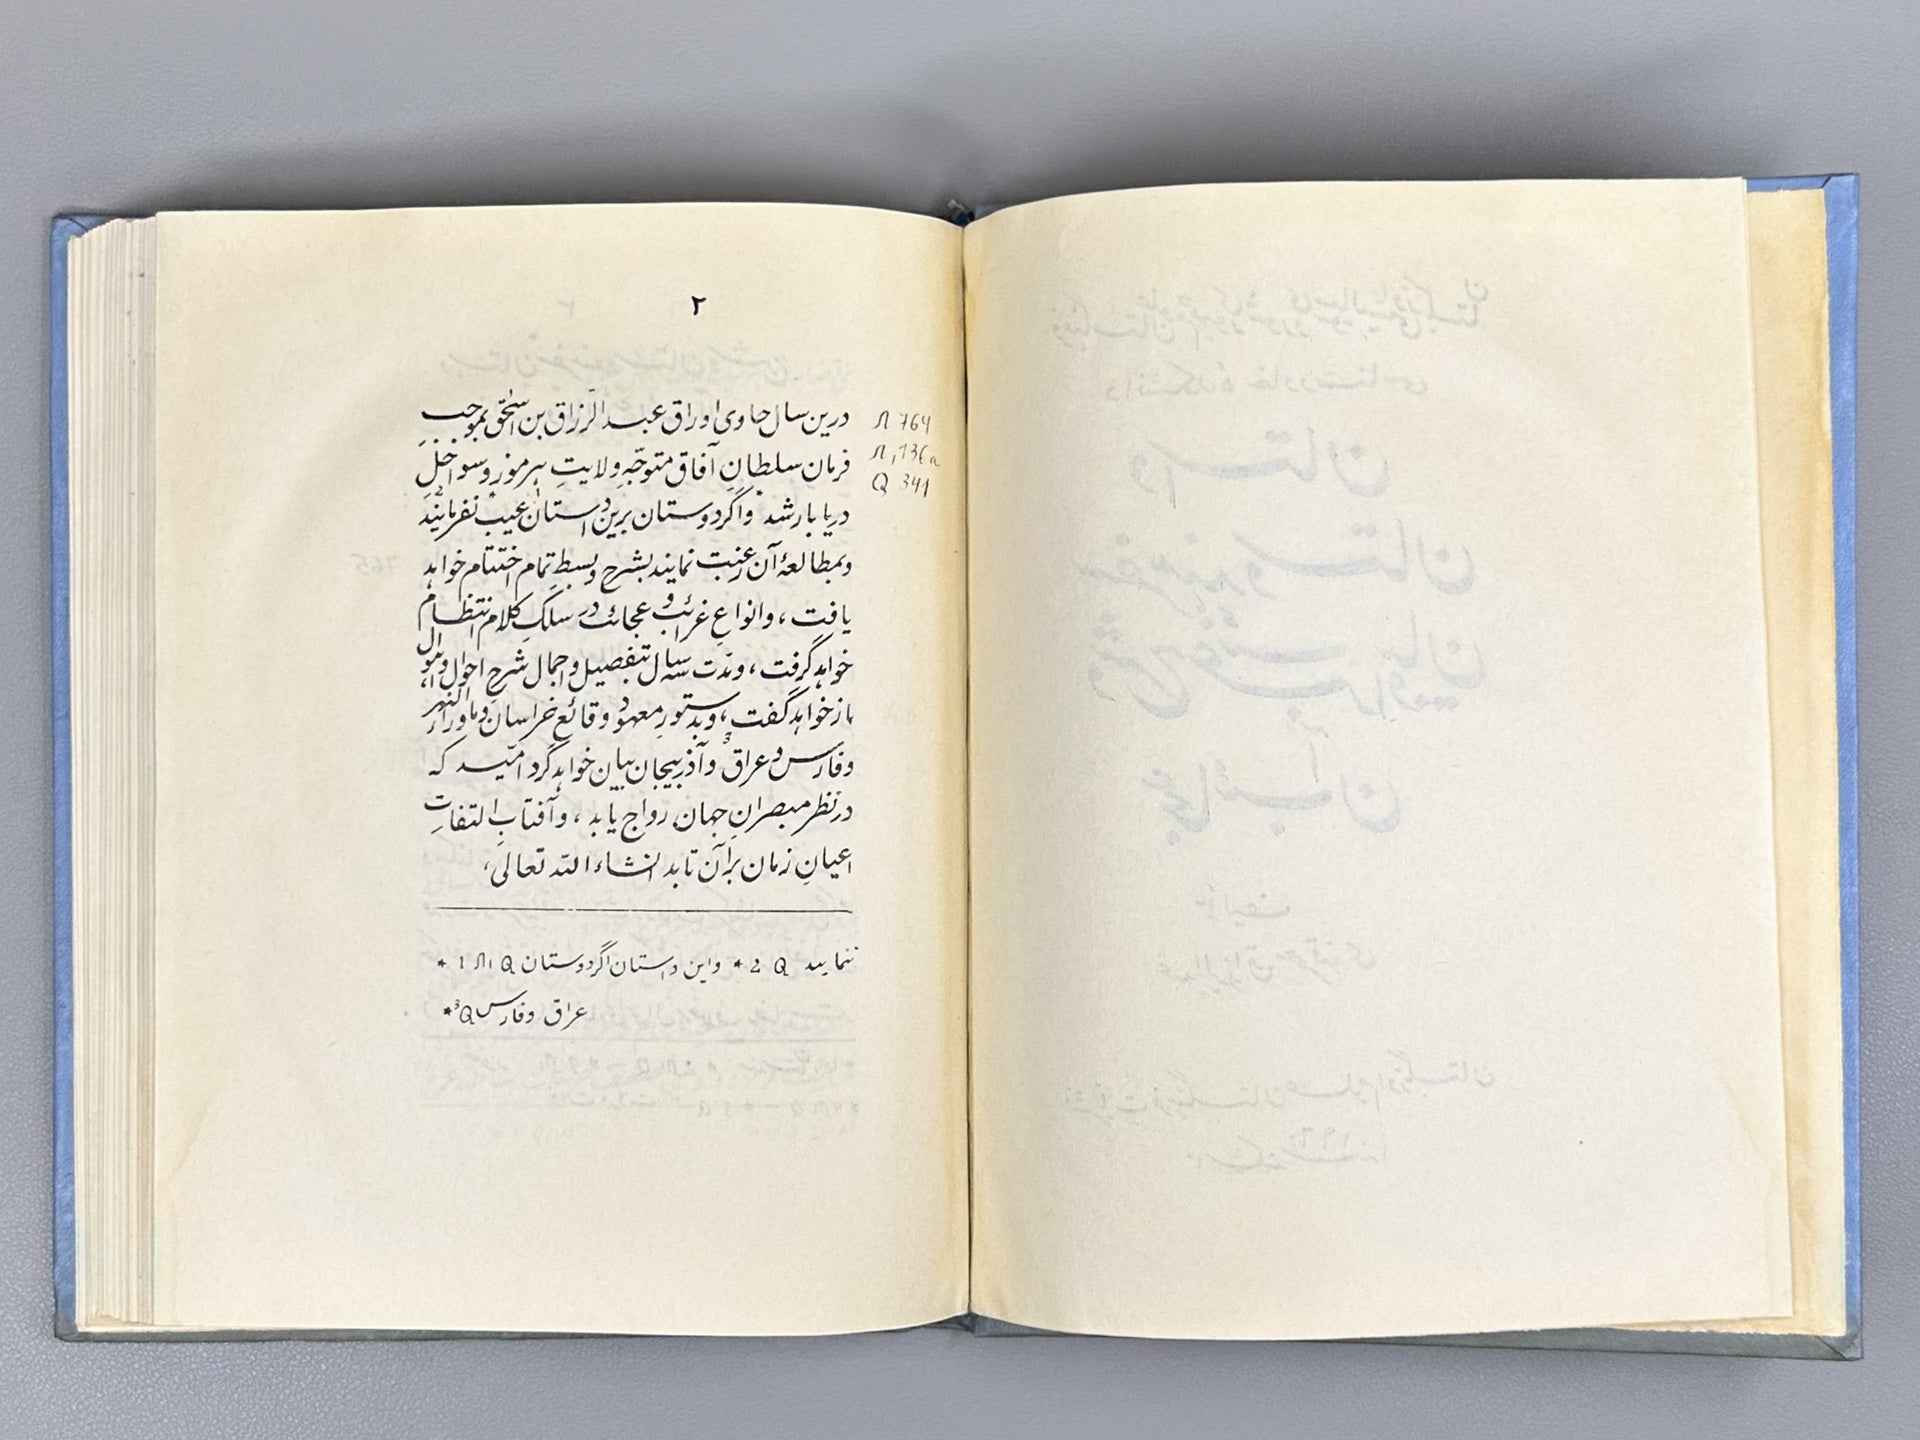 ۲
درین سال حاوی اوراق عبد الرّزاق بن اسحٰق بموجبِ
فرمان سلطانِ آفاق متوجّهِ ولایتِ هرموز و سواحلِ
دریابار شد و اگر دوستان برین داستان عیب نفرمایند
و بمطالعۀ آن رغبت نمایند بشرح و بسطِ تمام اختتام خواهد
یافت، و انواعِ غرائب و عجائب در سلکِ کلام انتظام
خواهد گرفت، و مدّت سه سال بتفصیل و اجمال شرحِ احوال و اهوال
باز خواهد گفت، و بدستورِ معهود وقائع خراسان و ماوراء النهر
و فارس و عراق³ و آذربیجان بیان خواهد کرد امّید که
در نظرِ مبصرانِ جهان رواج یابد، و آفتابِ التفاتِ
اعیانِ زمان بر آن تابد انشاء الله تعالی،
Л 764
Л₁ 136a
Q 341
* 1 Л Л₁ Q واین داستان اگر دوستان * 2 Q ننمایند
*³Q عراق وفارس